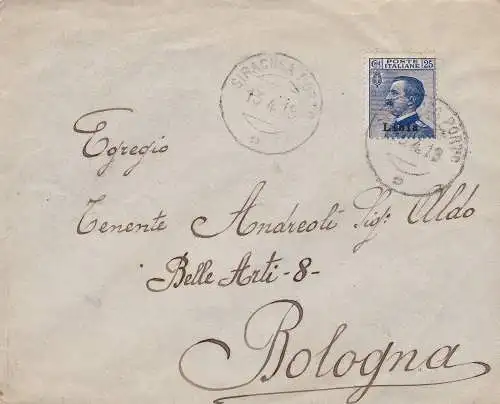 SIRACUSA PORTO
13.4.19
CENT POSTE ITALIANE 25
Libia
PORTO
13.4.19
Egregio
Tenente Andreoli Sigr Aldo
Belle Arti - 8 -
Bologna